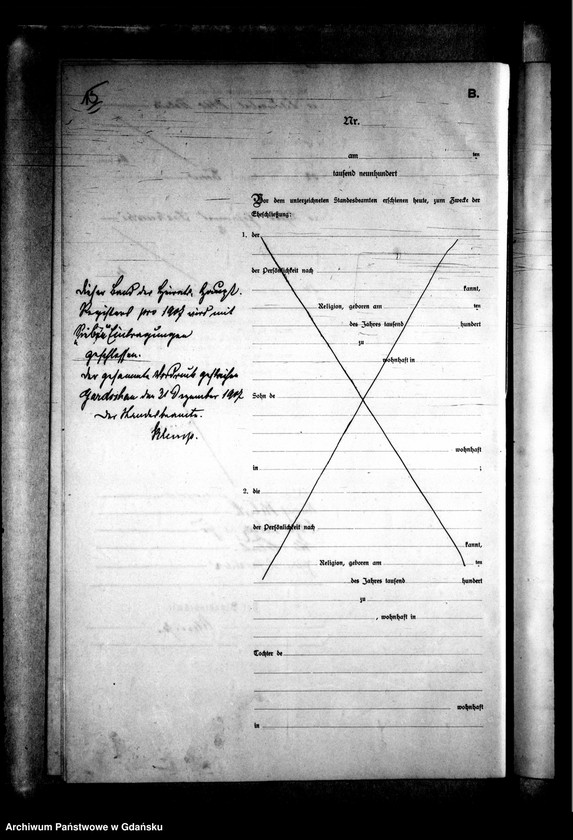 15
B.
Nr.
am ten
tausend neunhundert
Vor dem unterzeichneten Standesbeamten erschienen heute, zum Zwecke der
Eheschließung:
1. der
der Persönlichkeit nach
kannt,
Religion, geboren am ten
des Jahres tausend hundert
zu
wohnhaft in
Sohn de
wohnhaft
in ;
2. die
der Persönlichkeit nach
kannt,
Religion, geboren am ten
des Jahres tausend hundert
zu
, wohnhaft in
Tochter de
wohnhaft
in
Dieser Band des Heirats Haupt-
Registers pro 1907 wird mit
Eintragungen
geschlossen.
Der gesammte Vordruck gestrichen
Gardschau den 31 Dezember 1907
Der Standesbeamte.
Klemp.
Archiwum Państwowe w Gdańsku